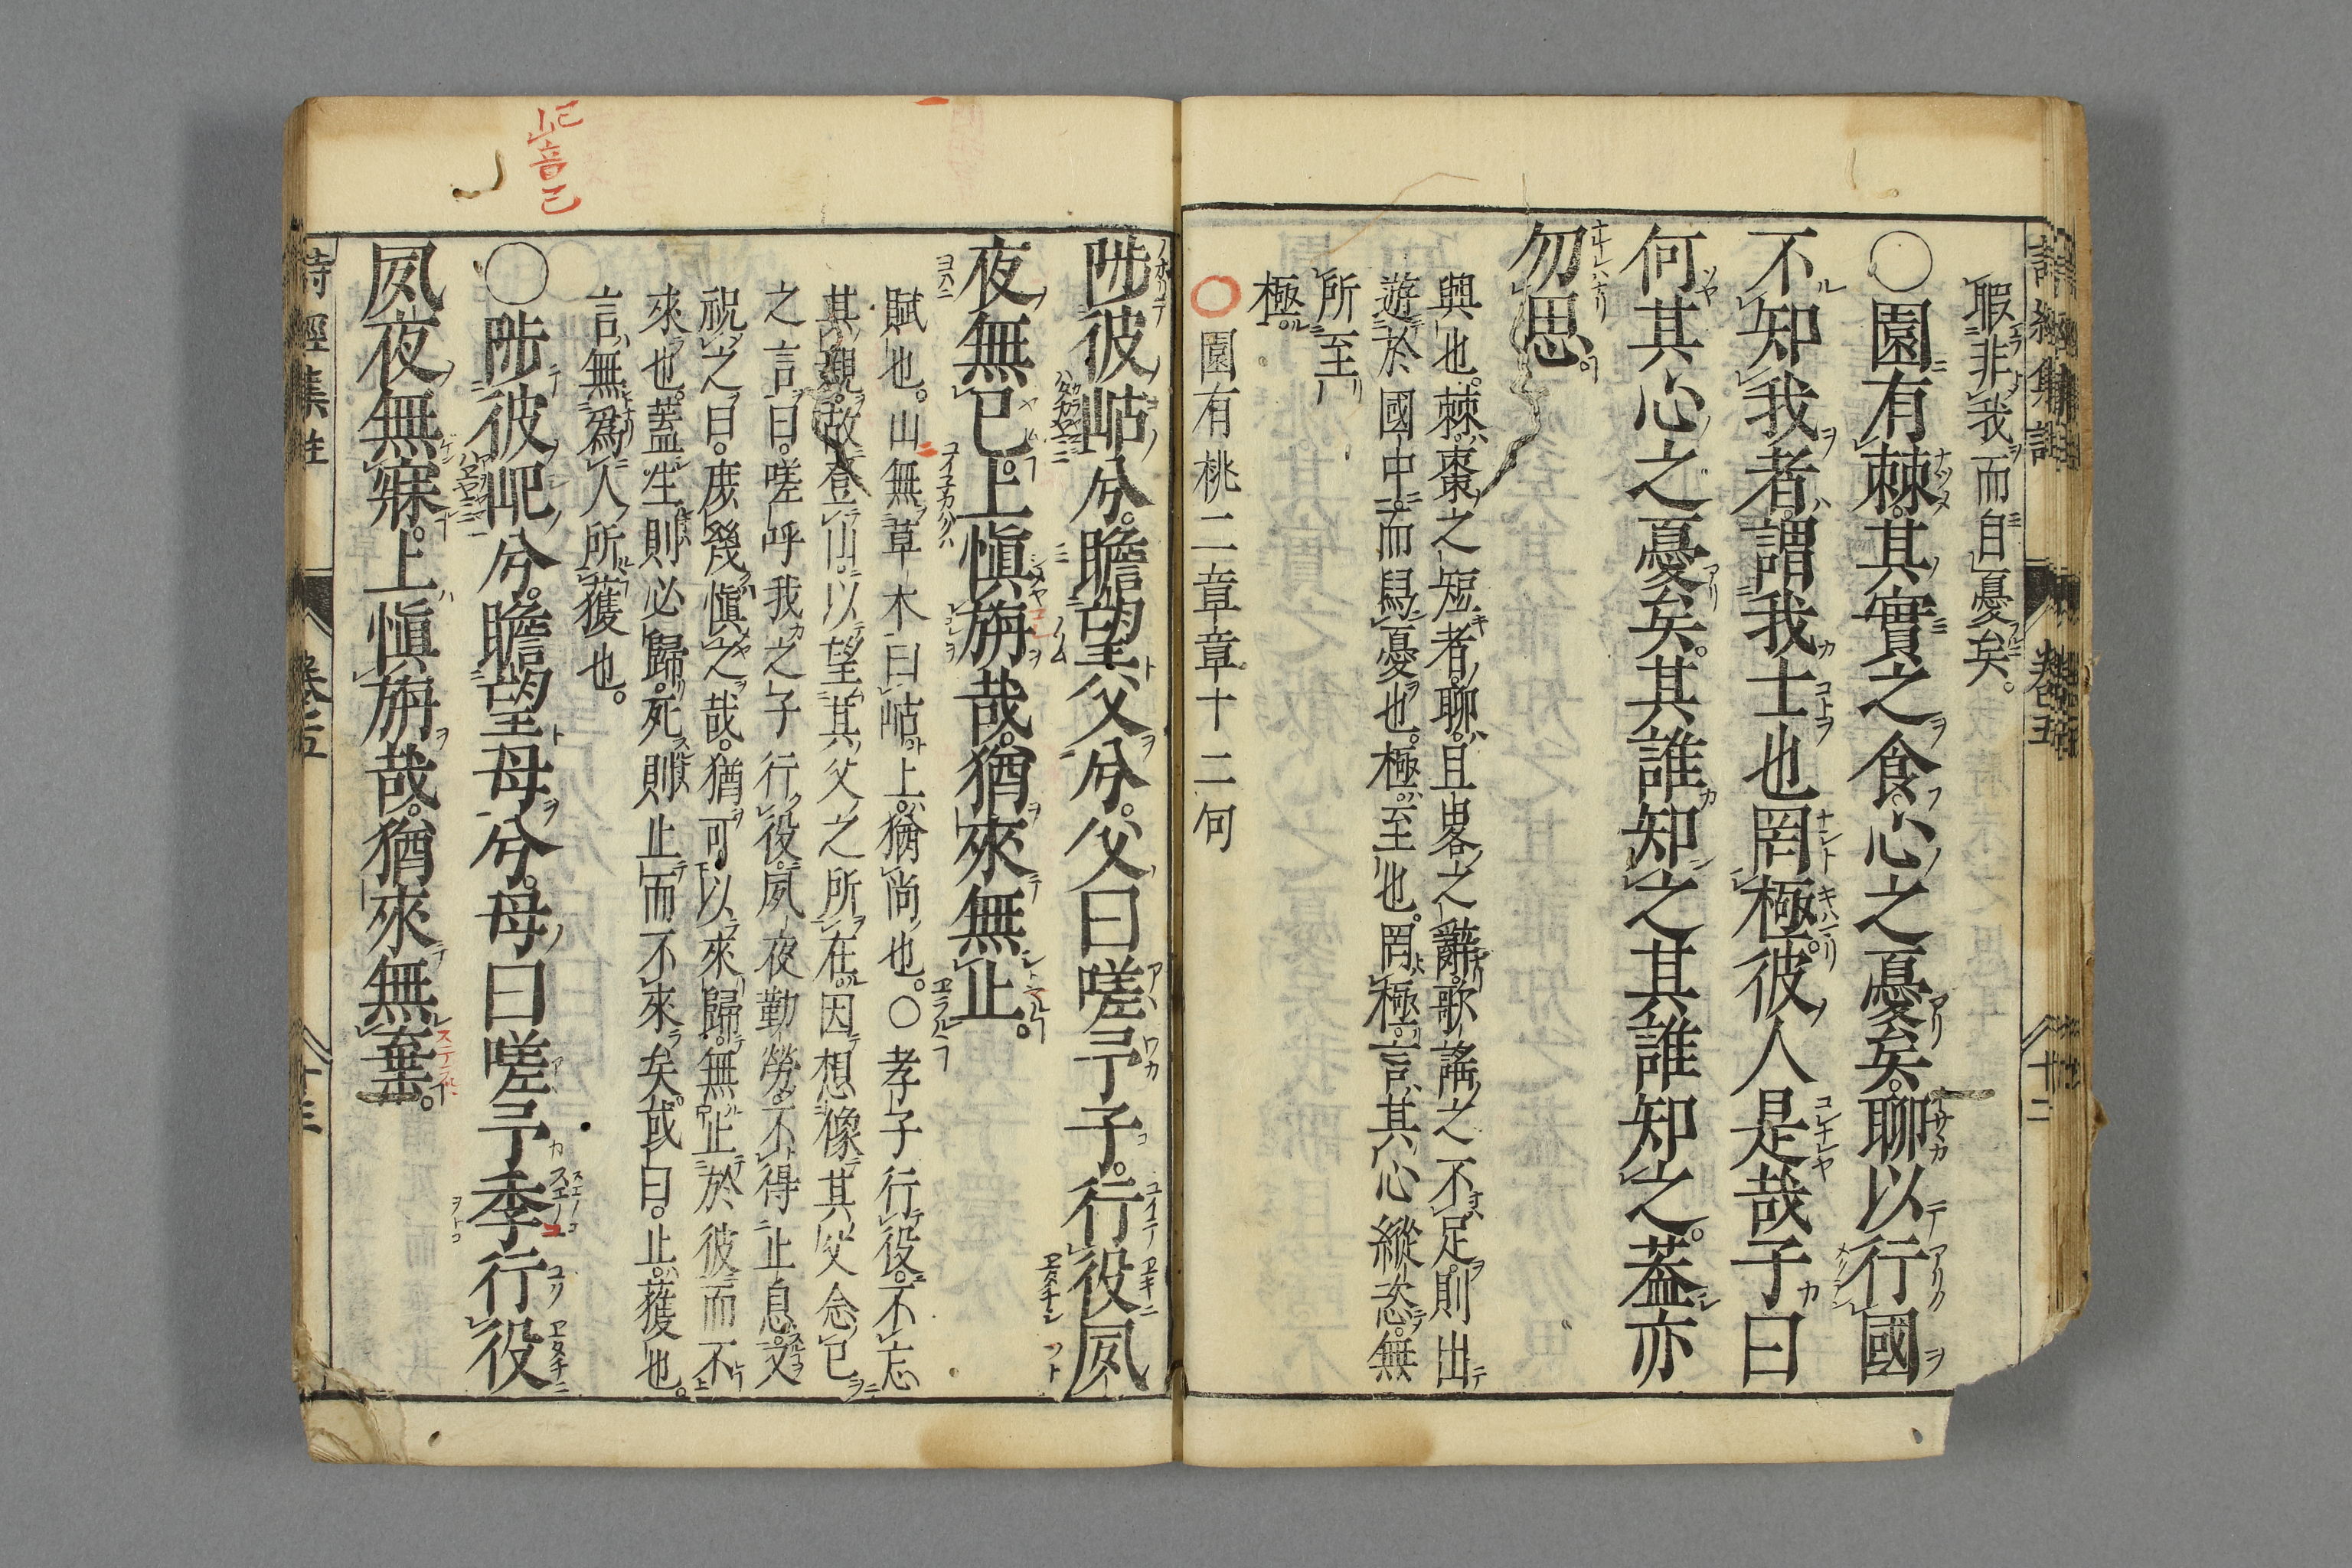 暇非我而自憂矣。
○園有棘。其實之食。心之憂矣。聊以行國
不知我者。謂我士也罔極。彼人是哉子曰
何其心之憂矣。其誰知之其誰知之。蓋亦
勿思。
興也。棘。棗之短者。聊。且畧之辭。歌謠之不足。則出
遊於國中。而舄憂也。極。至也。罔極。言其心縱恣。無
所至
極。
○園有桃二章章十二句
陟彼岵兮。瞻望父兮。父曰嗟予子。行役夙
夜無已。上愼旃哉。猶來無止。
賦也。山無草木曰岵。上。猶尚也。○孝子行役。不忘
其親。故登山。以望其父之所在。因想像其父念已
之言曰。嗟呼我之子行役。夙夜勤勞。不得止息。又
祝之曰。庶幾愼之哉。猶可以來歸。無止於彼而不
來也。蓋生則必歸。死則止而不來矣。或曰。止。獲也。
言無爲人所獲也。
○陟彼屺兮。瞻望母兮。母曰嗟予季行役
夙夜無寐。上愼旃哉。猶來無棄。
屺音己
詩經集註 卷五 十二
詩經集註 卷五 十三